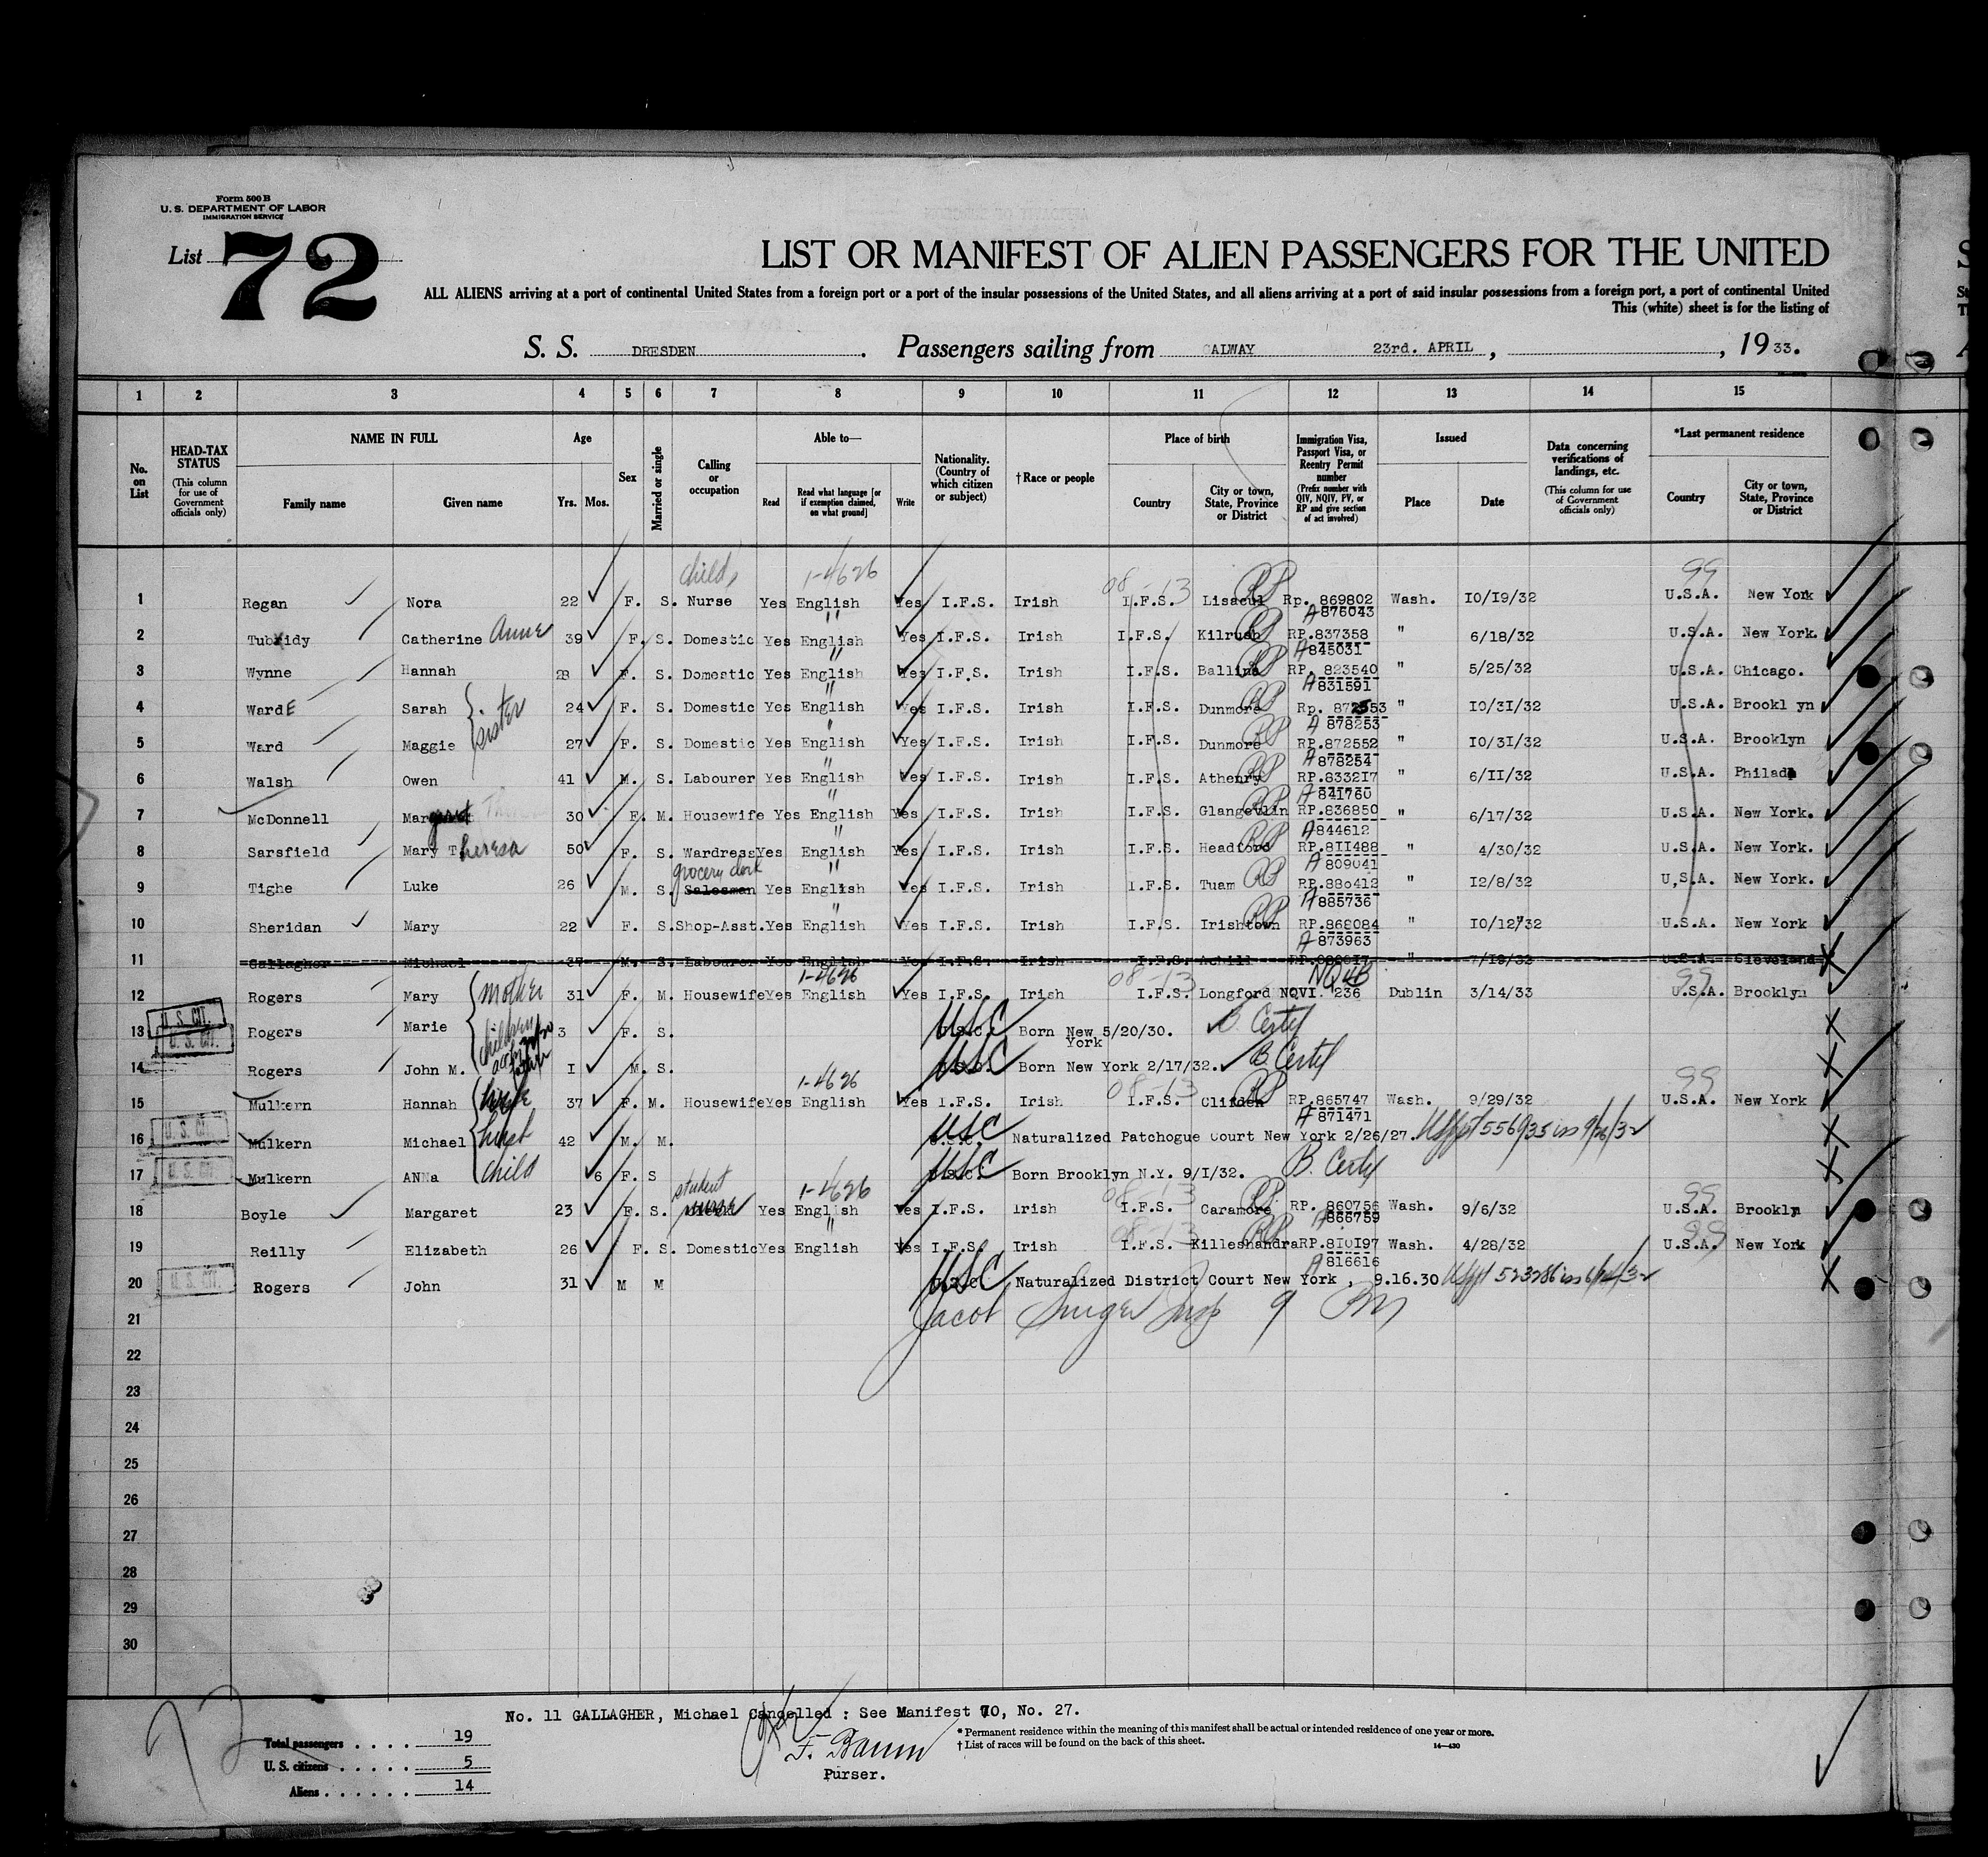 Form 500 B
U. S. DEPARTMENT OF LABOR
IMMIGRATION SERVICE
List 72
LIST OR MANIFEST OF ALIEN PASSENGERS FOR THE UNITED
ALL ALIENS arriving at a port of continental United States from a foreign port or a port of the insular possessions of the United States, and all aliens arriving at a port of said insular possessions from a foreign port, a port of continental United
This (white) sheet is for the listing of
S. S. DRESDEN. Passengers sailing from GALWAY 23rd. APRIL, , 1933.
1 2 3 4 5 6 7 8 9 10 11 12 13 14 15
No. on List
HEAD-TAX STATUS (This column for use of Government officials only)
NAME IN FULL Family name Given name
Age Yrs. Mos.
Sex
Married or single
Calling or occupation
Able to— Read Read what language [or if exemption claimed, on what ground] Write
Nationality. (Country of which citizen or subject)
†Race or people
Place of birth Country City or town, State, Province or District
Immigration Visa, Passport Visa, or Reentry Permit number (Prefix number with QIV, NQIV, PV, or RP and give section of act involved)
Issued Place Date
Data concerning verifications of landings, etc. (This column for use of Government officials only)
*Last permanent residence Country City or town, State, Province or District
child's 1-4626 08-13 RP 99
1 Regan Nora 22 F. S. Nurse Yes English Yes I.F.S. Irish I.F.S. Rp. 869802 Wash. 10/19/32 U.S.A. New York
A 876043
2 Tubridy Catherine Anne 39 F. S. Domestic Yes English Yes I.F.S. Irish I.F.S. Kilrush RP.837358 " 6/18/32 U.S.A. New York.
A 845031
3 Wynne Hannah 28 F. S. Domestic Yes English Yes I.F.S. Irish I.F.S. Ballina RP. 823540 " 5/25/32 U.S.A. Chicago.
A 831591
4 WardE Sarah sister 24 F. S. Domestic Yes English Yes I.F.S. Irish I.F.S. Dunmore Rp. 872553 " 10/31/32 U.S.A. Brookl yn
A 878253
5 Ward Maggie 27 F. S. Domestic Yes English Yes I.F.S. Irish I.F.S. Dunmore RP.872552 " 10/31/32 U.S.A. Brooklyn
A 878254
6 Walsh Owen 41 M. S. Labourer Yes English Yes I.F.S. Irish I.F.S. Athenry RP.833217 " 6/11/32 U.S.A. Philada
A 841760
7 McDonnell Margaret 30 F. M. Housewife Yes English Yes I.F.S. Irish I.F.S. Glangevlin RP.836850 " 6/17/32 U.S.A. New York.
A 844612
8 Sarsfield Mary Theresa 50 F. S. Wardress Yes English Yes I.F.S. Irish I.F.S. Headford RP.811488 " 4/30/32 U.S.A. New York.
grocery clerk A 809041
9 Tighe Luke 26 M. S. Salesman Yes English Yes I.F.S. Irish I.F.S. Tuam RP.880412 " 12/8/32 U,S.A. New York.
A 885736
10 Sheridan Mary 22 F. S. Shop-Asst. Yes English Yes I.F.S. Irish I.F.S. Irishtown RP.868084 " 10/12/32 U.S.A. New York
A 873963
11 Gallagher Michael 37 M. S. Labourer Yes English Yes I.F.S. Irish I.F.S. Achill " 7/19/32 U.S.A. Cleveland
1-4626 08-13 99
12 Rogers Mary mother 31 F. M. Housewife Yes English Yes I.F.S. Irish I.F.S. Longford NQVI. 236 Dublin 3/14/33 U.S.A. Brooklyn
U. S. CIT.
13 Rogers Marie children 3 F. S. USC Born New York 5/20/30. B. Certf
U. S. CIT.
14 Rogers John M. 1 M. S. USC Born New York 2/17/32. B. Certf
1-4626 08-13 RP 99
15 Mulkern Hannah wife 37 F. M. Housewife Yes English Yes I.F.S. Irish I.F.S. Clifden RP.865747 Wash. 9/29/32 U.S.A. New York
A 871471
U. S. CIT.
16 Mulkern Michael husb 42 M. M. USC Naturalized Patchogue Court New York 2/26/27. USppt 556935 iss 9/26/32
U. S. CIT.
17 Mulkern ANNa child 6 F. S USC Born Brooklyn N.Y. 9/1/32. B. Certf
student 1-4626 08-13 RP 99
18 Boyle Margaret 23 F. S. nurse Yes English Yes I.F.S. Irish I.F.S. Caramore RP. 860756 Wash. 9/6/32 U.S.A. Brooklyn
A 866759
19 Reilly Elizabeth 26 F. S. Domestic Yes English Yes I.F.S. Irish I.F.S. Killeshandra RP.810197 Wash. 4/28/32 U.S.A. New York
A 816616
U. S. CIT.
20 Rogers John 31 M M USC Naturalized District Court New York , 9.16.30 USppt 523286 iss 6/14/32
21 Jacob
22
23
24
25
26
27
28
29
30
No. 11 GALLAGHER, Michael Cancelled : See Manifest 70, No. 27.
72
Total passengers . . . . 19
U. S. citizens . . . . . 5
Aliens . . . . . . 14
F. Baum
Purser.
* Permanent residence within the meaning of this manifest shall be actual or intended residence of one year or more.
† List of races will be found on the back of this sheet.
14—430